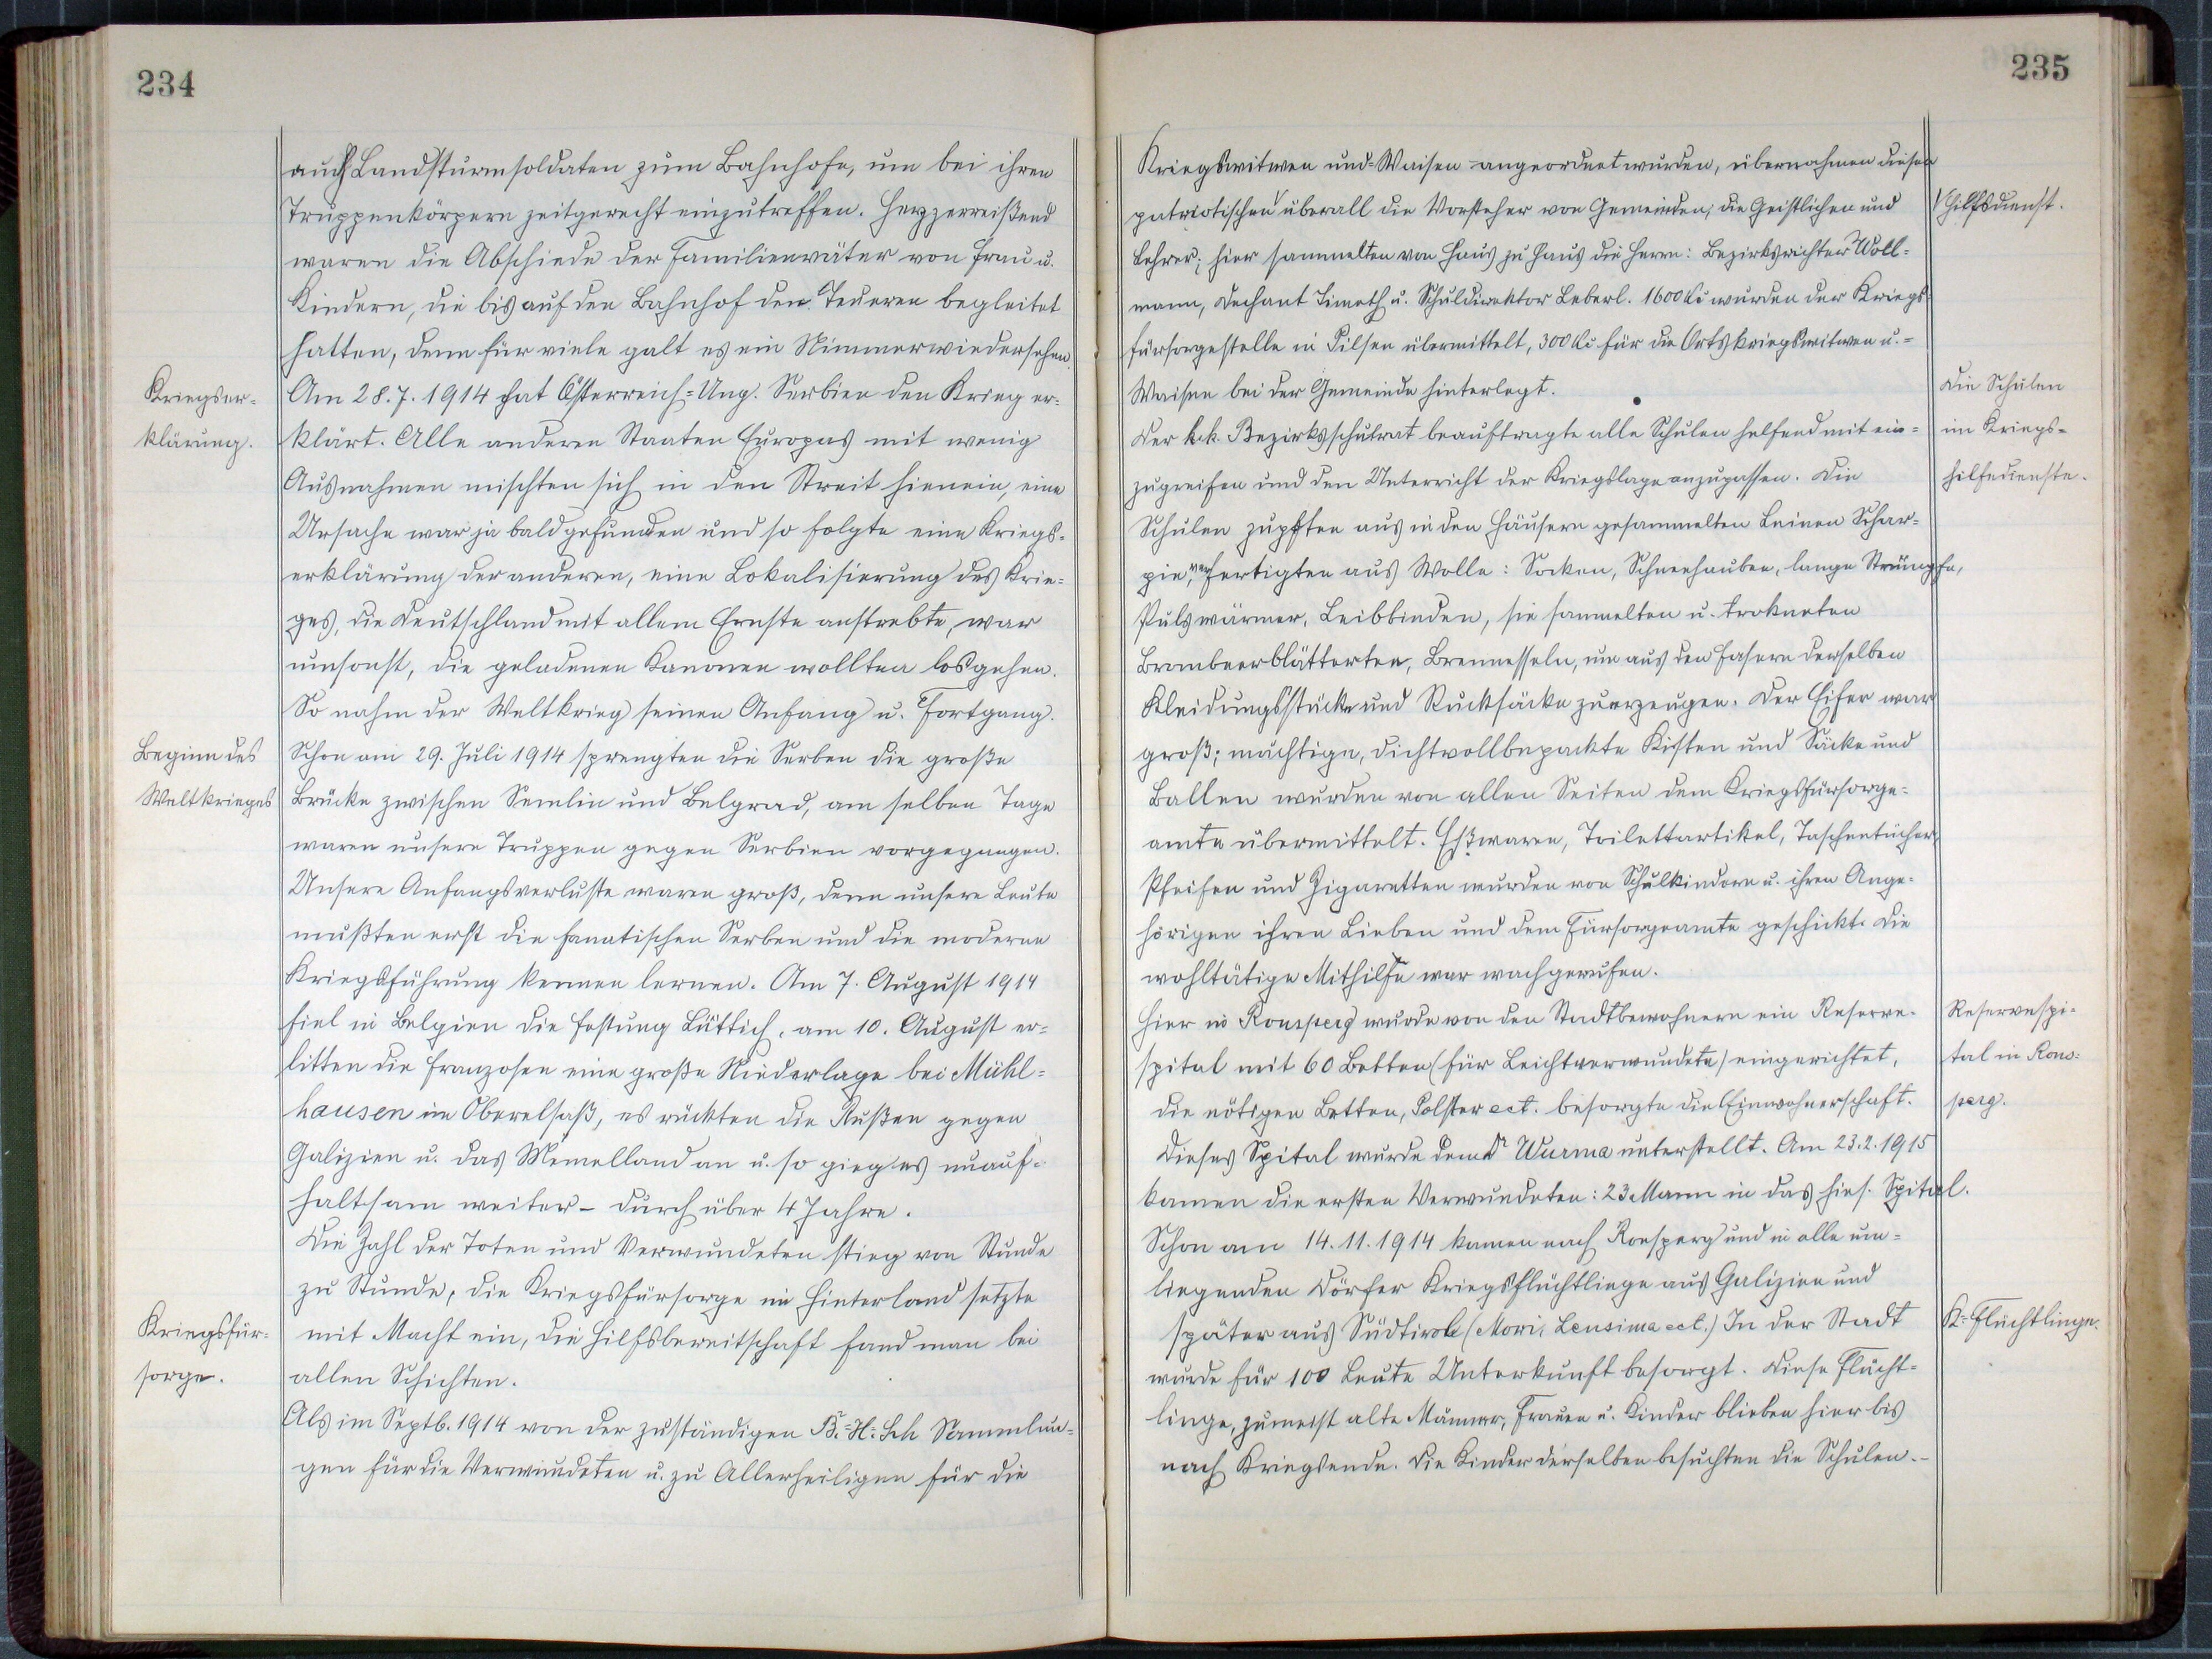 234
auch Landsturmsoldaten zum Bahnhofe, um bei ihren
Truppenkörpern zeitgerecht einzutreffen. Herzzerreißend
waren die Abschiede der Familienväter von Frau u.
Kindern, die bis auf den Bahnhof den Teueren begleitet
hatten, denn für viele galt es ein Nimmerwiedersehen.
Kriegser=
klärung.
Am 28.7.1914 hat Österreich=Ung. Serbien den Krieg er=
klärt. Alle anderen Staaten Europas mit wenig
Ausnahmen mischten sich in den Streit hienein, eine
Ursache war ja bald gefunden und so folgte eine Kriegs=
erklärung der anderen, eine Lokalisierung des Krie=
ges, die Deutschland mit allem Ernste anstrebte, war
umsonst, die geladenen Kanonen wollten losgehen.
So nahm der Weltkrieg seinen Anfang u. Fortgang.
Beginn des
Weltkrieges
Schon am 29. Juli 1914 sprengten die Serben die große
Brücke zwischen Semlin und Belgrad, am selben Tage
waren unsere Truppen gegen Serbien vorgegangen.
Unsere Anfangsverluste waren groß, denn unsere Leute
mußten erst die fanatischen Serben und die moderne
Kriegsführung kennen lernen. Am 7. August 1914
fiel in Belgien die Festung Lüttich, am 10. August er=
litten die Franzosen eine große Niederlage bei Mühl=
hausen im Oberelsaß, es rückten die Rußen gegen
Galizien u. das Memelland an u. so gieg es unauf=
haltsam weiter – durch über 4 Jahre.
Die Zahl der Toten und Verwundeten stieg von Stunde
zu Stunde, die Kriegsfürsorge im Hinterland setzte
Kriegsfür=
sorge.
mit Macht ein, die Hilfsbereitschaft fand man bei
allen Schichten.
Als im Septb. 1914 von der zuständigen B.=H.=Sch Sammlun=
gen für die Verwundeten u. zu Allerheiligen für die
235
Kriegswitwen und=Waisen angeordnet wurden, übernahmen diesen
patriotischen √ überall die Vorsteher von Gemeinden, die Geistlichen und
√ Hilfsdienst.
Lehrer; hier sammelten von Haus zu Haus die Herrn: Bezirksrichter Woll=
mann, Dechant Simeth u. Schuldirektor Leberl. 1600 Kč wurden der Kriegs=
fürsorgestelle in Pilsen übermittelt, 300 Kč für die Ortskriegswitwen u.=
Waisen bei der Gemeinde hinterlegt.
Die Schulen
im Kriegs=
hilfedienste.
Der k.k. Bezirksschulrat beauftragte alle Schulen helfend mit ein=
zugreifen und den Unterricht der Kriegslage anzupassen. Die
Schulen zupften aus in den Häusern gesammelten Leinen Schar=
pie, verfertigten aus Wolle: Socken, Schneehauben, lange Strümpfe,
Pulswärmer, Leibbinden, sie sammelten u. trokneten
Brombeerblättertee, Brennesseln, um aus den Fasern derselben
Kleidungsstücke und Rucksäcke zu erzeugen. Der Eifer war
groß; mächtige, dichtvollbepackte Kisten und Säcke und
Ballen wurden von allen Seiten dem Kriegsfürsorge=
amte übermittelt. Eßwaren, Toilettartikel, Taschentücher,
Pfeifen und Zigaretten wurden von Schulkindern u. ihren Ange=
hörigen ihren Lieben und dem Fürsorgeamte geschickt. Die
wohltätige Mithilfe war wachgerufen.
Reservespi=
tal in Rons=
perg.
Hier in Ronsperg wurde von den Stadtbewohnern ein Reserve=
spital mit 60 Betten (für Leichtverwundete) eingerichtet,
die nötigen Betten, Polster ect. besorgte die Einwohnerschaft.
Dieses Spital wurde dem Dr Wurma unterstellt. Am 23.2.1915
kamen die ersten Verwundeten: 23 Mann in das hies. Spital.
Schon am 14.11.1914 kamen nach Ronsperg und in alle um=
liegenden Dörfer Kriegsflüchtlinge aus Galizien und
K=Flüchtlinge.
später aus Südtirole (Mori, Lensima ect.) In der Stadt
wurde für 100 Leute Unterkunft besorgt. Diese Flücht=
linge, zumeist alte Männer, Frauen u. Kinder blieben hier bis
nach Kriegsende. Die Kinder derselben besuchten die Schulen.–